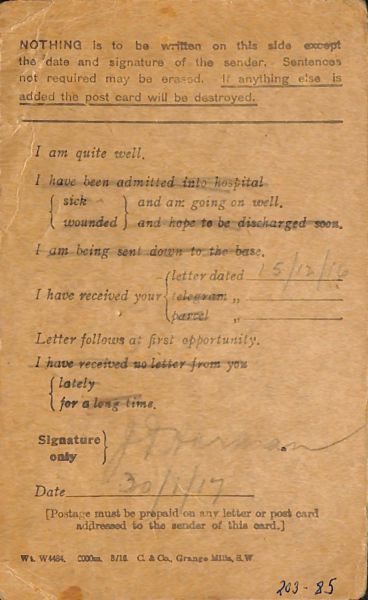 NOTHING is to be written on this side except
the date and signature of the sender. Sentences
not required may be erased. If anything else is
added the post card will be destroyed.
I am quite well.
I have been admitted into hospital
{ sick } and am going on well.
{ wounded } and hope to be discharged soon.
I am being sent down to the base.
{ letter dated 25/12/16
I have received your { telegram „
{ parcel „
Letter follows at first opportunity.
I have received no letter from you
{ lately
{ for a long time.
Signature
only }
Date 30/1/17
[Postage must be prepaid on any letter or post card
addressed to the sender of this card.]
Wt. W4484. 8/16. C. & Co., Grange Mills, S.W
203-85